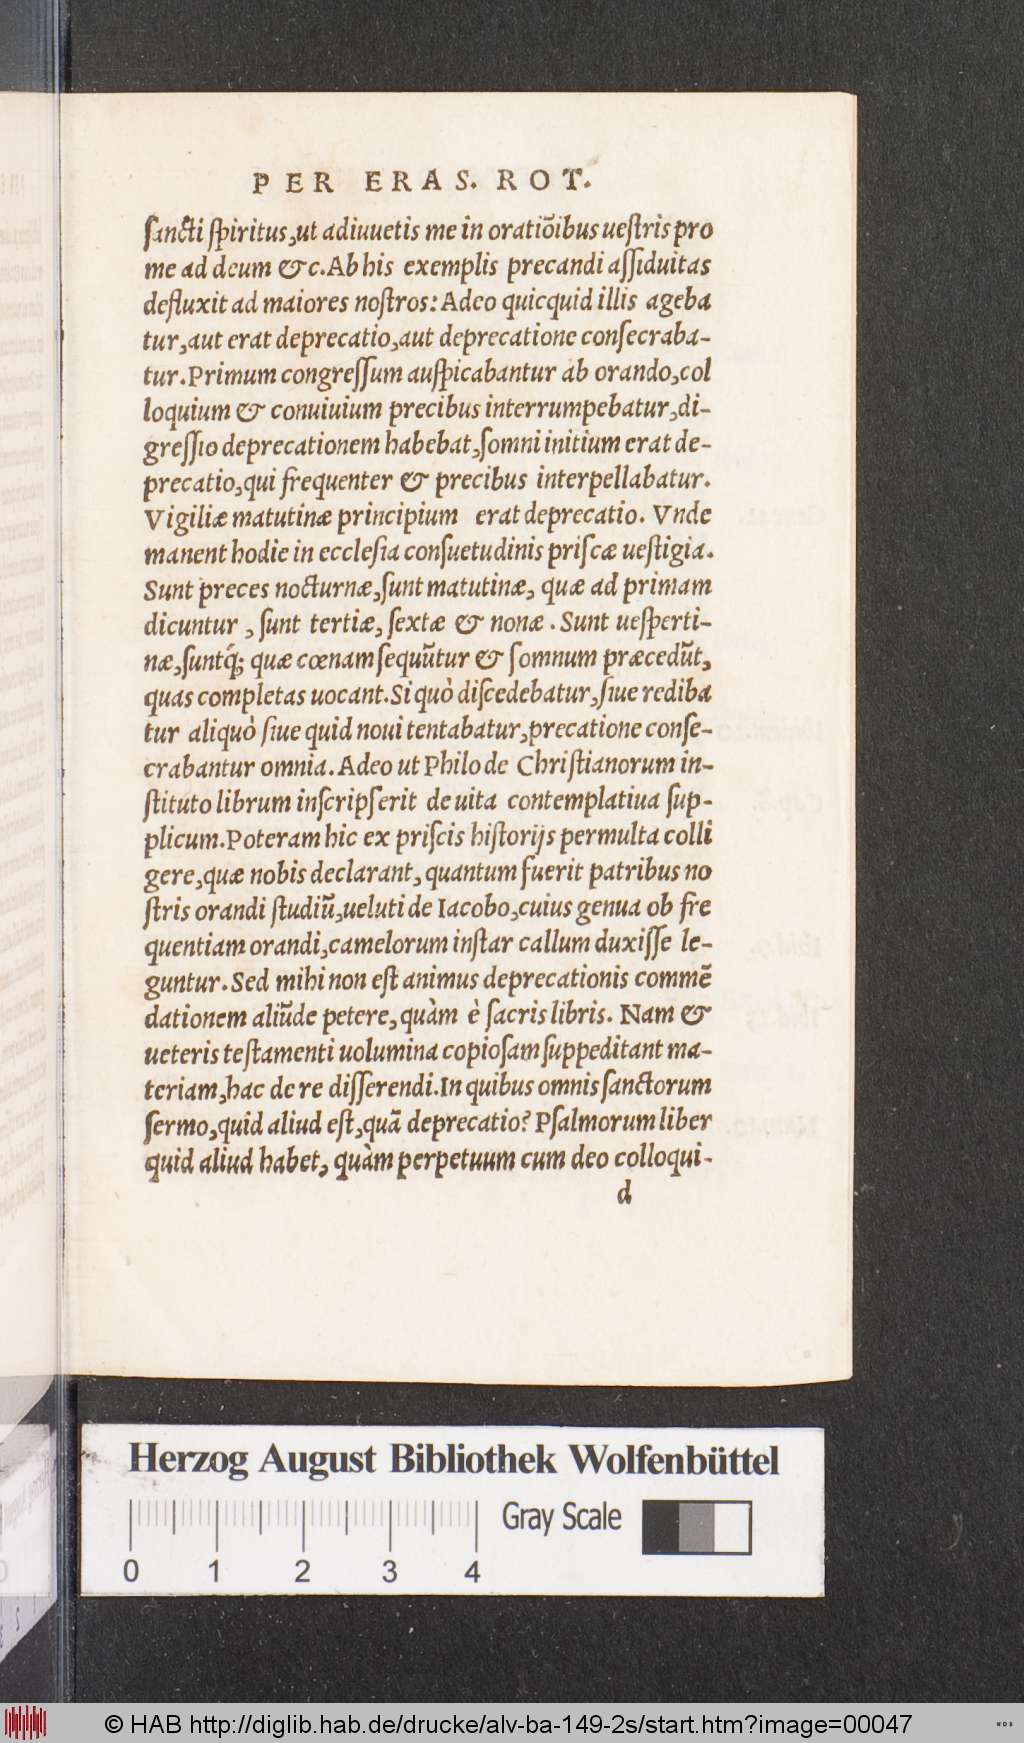 PER ERAS. ROT.
sancti spiritus,ut adiuuetis me in oratiōibus uestris pro
me ad deum &c.Ab his exemplis precandi assiduitas
defluxit ad maiores nostros: Adeo quicquid illis ageba
tur,aut erat deprecatio,aut deprecatione consecraba-
tur.Primum congressum auspicabantur ab orando,col
loquium & conuiuium precibus interrumpebatur,di-
gressio deprecationem habebat,somni initium erat de-
precatio,qui frequenter & precibus interpellabatur.
Vigiliæ matutinæ principium erat deprecatio. Vnde
manent hodie in ecclesia consuetudinis priscæ uestigia.
Sunt preces nocturnæ,sunt matutinæ, quæ ad primam
dicuntur , sunt tertiæ, sextæ & nonæ . Sunt uesperti-
næ,suntq́; quæ cœnam sequūtur & somnum præcedūt,
quas completas uocant.Si quò discedebatur,siue rediba
tur aliquò siue quid noui tentabatur,precatione conse-
crabantur omnia.Adeo ut Philo de Christianorum in-
stituto librum inscripserit de uita contemplatiua sup-
plicum.Poteram hic ex priscis historijs permulta colli
gere,quæ nobis declarant,quantum fuerit patribus no
stris orandi studiū,ueluti de Iacobo,cuius genua ob fre
quentiam orandi,camelorum instar callum duxisse le-
guntur.Sed mihi non est animus deprecationis commē
dationem aliūde petere,quàm è sacris libris. Nam &
ueteris testamenti uolumina copiosam suppeditant ma-
teriam,hac de re disserendi.In quibus omnis sanctorum
sermo,quid aliud est,quā deprecatio? Psalmorum liber
quid aliud habet, quàm perpetuum cum deo colloqui-
d
Herzog August Bibliothek Wolfenbüttel
Gray Scale
0 1 2 3 4
© HAB http://diglib.hab.de/drucke/alv-ba-149-2s/start.htm?image=00047